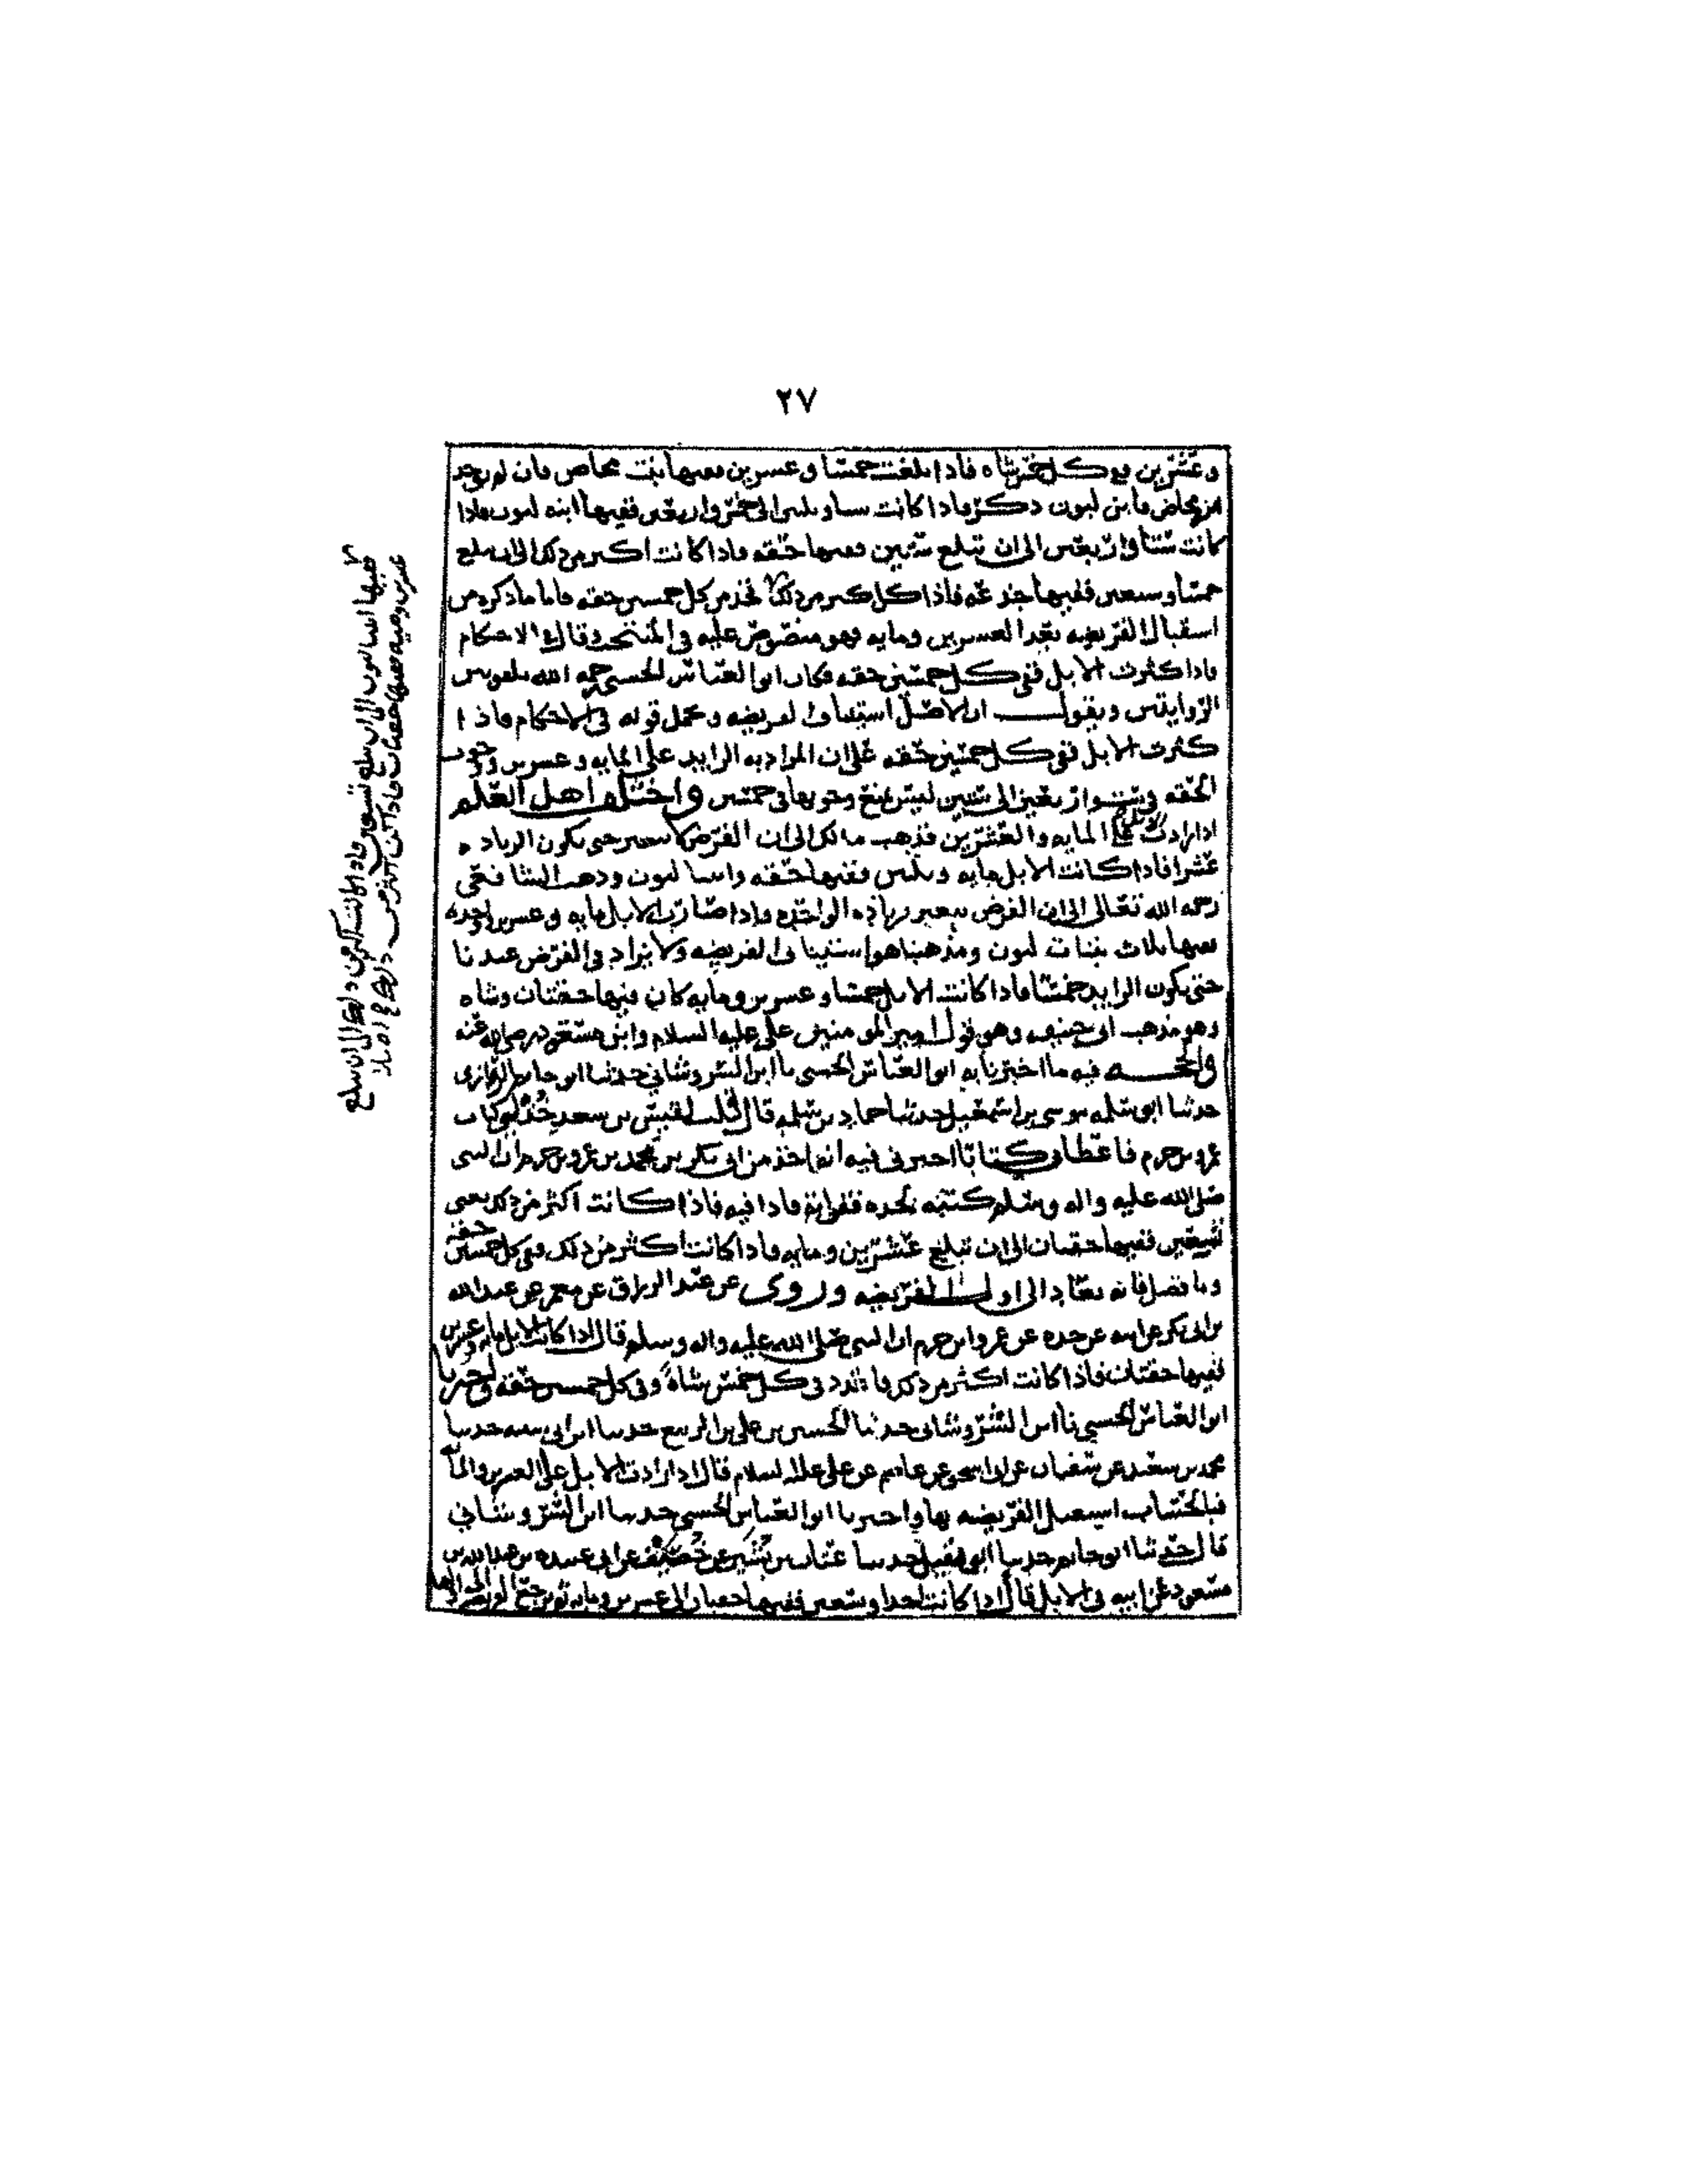 ٢٧
وعشرين ففي كل خمس شاه فاذا بلغت خمسا وعشرين ففيها بنت مخاض فان لم يوجد
ابنة مخاض فابن لبون ذكر فاذا كانت ستا وثلثين الى خمس واربعين ففيها ابنه لبون فاذا
كانت ستا واربعين الى ان تبلغ ستين ففيها حقه فاذا كانت اكثر من ذلك الى ان تبلغ
خمسا وسبعين ففيها جذعه فاذا كان اكثر من ذلك فخذ من كل خمسين حقه فاما ما ذكره من
استقبال الفريضه بعد العشرين ومايه فهو منصوص عليه في المنتخب وقال في الاحكام
فاذا كثرت الابل ففي كل خمسين حقه فكان ابو العباس الحسني رحمه الله يلفق بين
الروايتين ويقول ان الاصل استيناف الفريضه ويحمل قوله في الاحكام فاذا
كثرت الابل ففي كل خمسين حقه على ان المراد به الزايد على المايه وعشرين وجوب
الحقه في ست واربعين الى ستين ليس يمنع وجوبها في خمسين واختلف اهل العلم
اذا زادت الابل على المايه والعشرين فذهب مالك الى ان الفرض لا يتغير حتى يكون الزياده
عشرا فاذا كانت الابل مايه وثلثين ففيها حقه وابنتا لبون وذهب الشافعي
رحمه الله تعالى الى ان الفرض يتغير بزياده الواحده واذا صارت الابل مايه وعشرين واحده
ففيها ثلاث بنات لبون ومذهبنا هو استيناف الفريضه ولا يزاد في الفرض عندنا
حتى يكون الزايد خمسا فاذا كانت الابل خمسا وعشرين ومايه كان فيها حقتان وشاه
وهو مذهب ابي حنيفه وهو قول امير المومنين علي عليه السلام وابن مسعود رضي الله عنه
والحجه فيه ما اخبرنا به ابو العباس الحسني نا ابن الشروشاني حدثنا ابو حاتم الرازي
حدثنا ابو سلمه موسى بن اسمعيل حدثنا حماد بن سلمه قال قلت لقيس بن سعد خذ لي كتاب
عمرو بن حزم فاعطاني كتابا اخبرني فيه انه اخذ من ابي بكر بن محمد بن عمرو بن حزم ان النبي
صلى الله عليه واله وسلم كتبه لجده فقراته فاذا فيه فاذا كانت اكثر من ذلك يعني
تسعين ففيها حقتان الى ان تبلغ عشرين ومايه فاذا كانت اكثر من ذلك ففي كل خمسين حقه
وما فضل فانه يعاد الى اول الفريضه وروى عن عبد الرزاق عن معمر عن عبد الله
بن ابي بكر عن ابيه عن جده عن عمرو ابن حزم ان النبي صلى الله عليه واله وسلم قال اذا كانت الابل مايه وعشرين
ففيها حقتان فاذا كانت اكثر من ذلك في كل خمس شاة وفي كل خمسين حقه واخبرنا
ابو العباس الحسني نا ابن الشروشاني حدثنا الحسين بن علي بن الربيع حدثنا ابن ابي شيبه حدثنا
محمد بن سعيد عن سفيان عن ابي اسحق عن عاصم عن علي عليه السلام قال اذا زادت الابل على العشرين والمايه
فبالحساب استقبل الفريضه بها واخبرنا ابو العباس الحسني حدثنا ابن الشروشاني
قال حدثنا ابو حاتم حدثنا عتاب بن بشير عن خصيف عن ابي عبيده بن عبد الله بن
مسعود عن ابيه في الابل قال اذا كانت احدا وتسعين ففيها حقتان الى عشرين ومايه ثم ترجع الفريضه
ففيها ابنتا لبون الى ان تبلغ تسعين فاذا كانت اكثر من ذلك الى ان تبلغ
عشرين ومايه ففيها حقتان فاذا كانت اكثر من ذلك